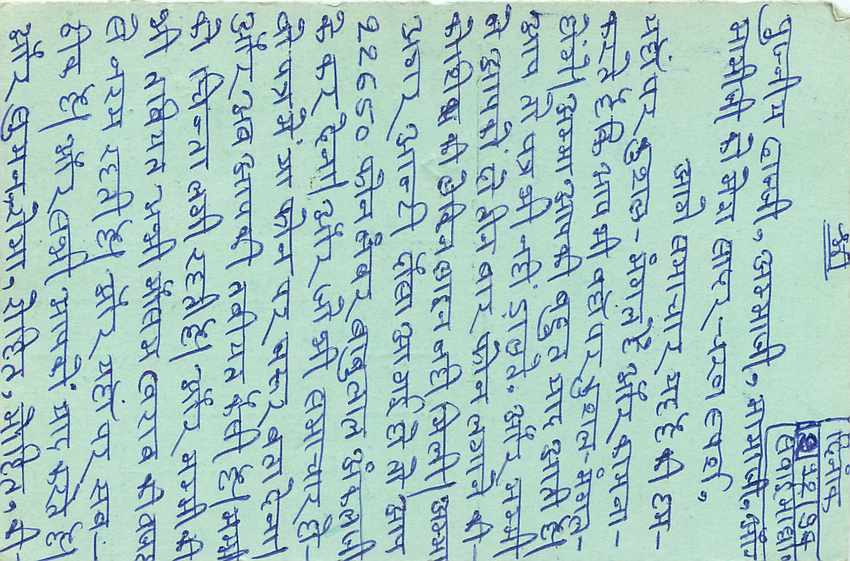 श्री
दिनांक
12.94
पुज्नीय दाम्जी, अम्माजी, मामाजी, और
मामीजी को मेरा सादर-चरण स्पर्श,
आगे समाचार यह है की हम-
यहां पर कुशल-मंगल है और कामना-
करते है कि आप भी वहां पर कुशल-मंगल-
होंगे। अम्मा आपकी बहुत याद आती है।
आप तो पत्र भी नहीं डालते, और मम्मी
ने आपको दो तीन बार फोन लगाने की-
कोशिश की लेकिन लाइन नही मिली। अम्मा
अगर आन्टी पैसा आ गई हो तो आप
22650 फोन नंबर बाबुलाल
के कर देना। और जो भी समाचार हो-
वो पत्र में या फोन पर जरूर बता देना।
और अब आपकी तबीयत कैसी है। मम्मी
को चिन्ता लगी रहती है। और मम्मी की
भी तबियत अभी मौसम खराब की वजह
से नरम रहती है। और यहां पर सब-
ठीक है। और सभी आपको याद करते है।
और सुमन, रोमा, रोहित, मोहित, की-